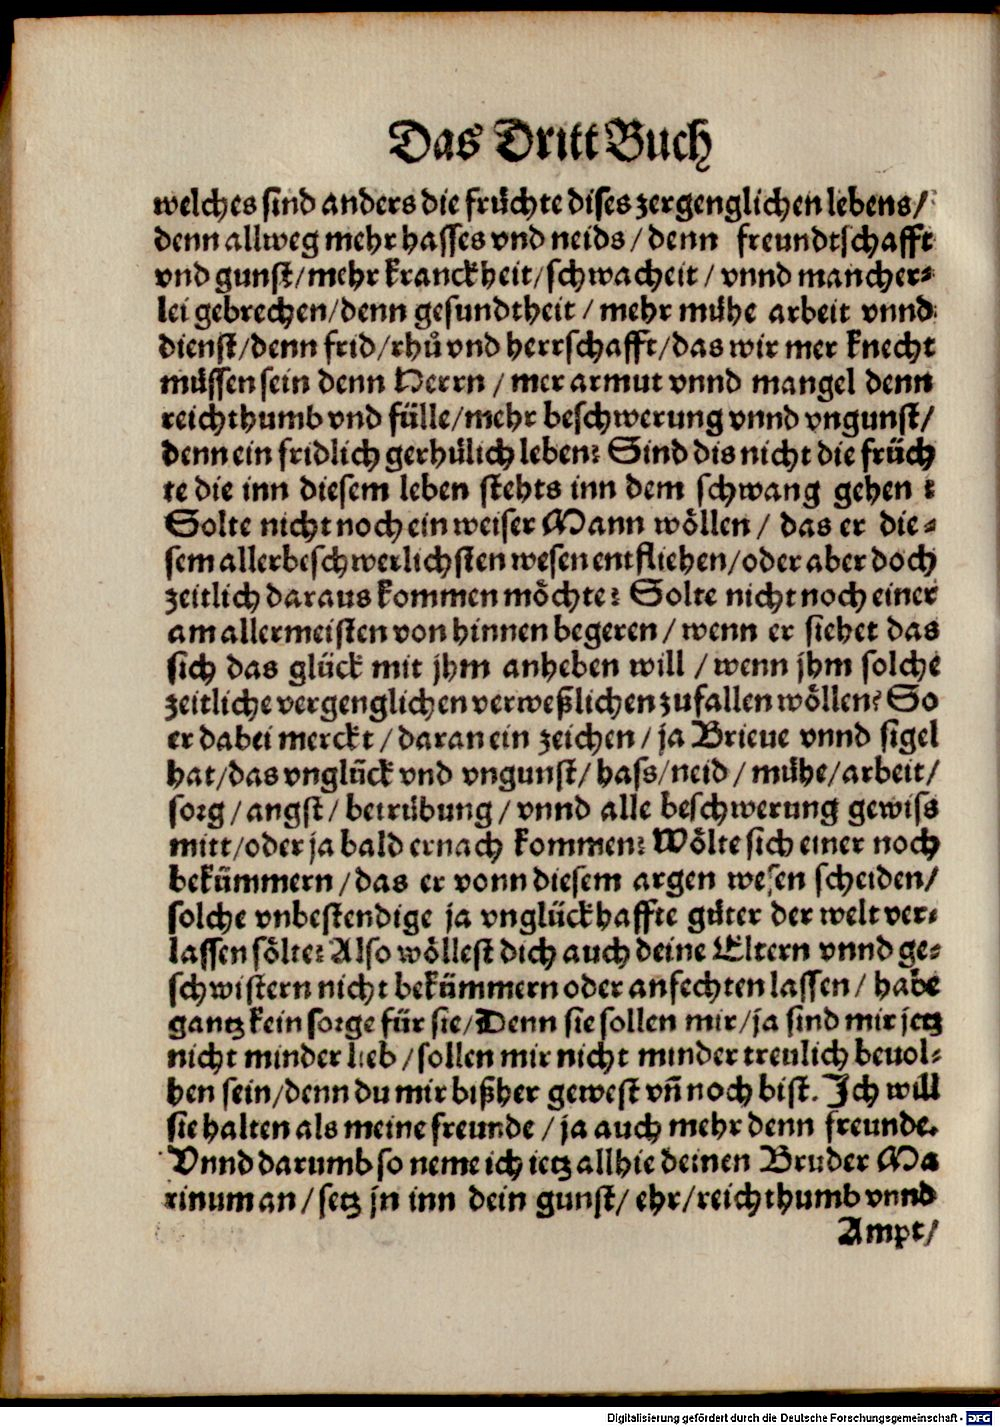 Das Dritt Buch
welches sind anders die früchte dises zergenglichen lebens/
denn allweg mehr hasses vnd neids/ denn freundtschafft
vnd gunst/mehr kranckheit/schwacheit/ vnnd mancher⸗
lei gebrechen/denn gesundtheit/ mehr mühe arbeit vnnd
dienst/denn frid/rhů vnd herrschafft/das wir mer knecht
müssen sein denn Herrn/ mer armut vnnd mangel denn
reichthumb vnd fülle/mehr beschwerung vnnd vngunst/
denn ein fridlich gerhülich leben? Sind dis nicht die früch
te die inn diesem leben stehts inn dem schwang gehen ?
Solte nicht noch ein weiser Mann wöllen/ das er die⸗
sem allerbeschwerlichsten wesen entfliehen/oder aber doch
zeitlich daraus kommen möchte? Solte nicht noch einer
am allermeisten von hinnen begeren/ wenn er siehet das
sich das glück mit jhm anheben will/ wenn jhm solche
zeitliche vergenglichen verweßlichen zufallen wöllen? So
er dabei merckt/ daran ein zeichen/ ja Brieue vnnd sigel
hat/das vnglück vnd vngunst/ hass/neid/ mühe/arbeit/
sorg/angst/ betrübung/ vnnd alle beschwerung gewiss
mitt/oder ja bald ernach kommen? Wölte sich einer noch
bekümmern/das er vonn diesem argen wesen scheiden/
solche vnbestendige ja vnglückhaffte güter der welt ver⸗
lassen sölte? Also wöllest dich auch deine Eltern vnnd ge⸗
schwistern nicht bekümmern oder anfechten lassen/ habe
gantz kein sorge für sie/Denn sie sollen mir/ja sind mir jetz
nicht minder lieb/sollen mir nicht minder treulich beuol⸗
hen sein/denn du mir bißher gewest vñ noch bist. Ich will
sie halten als meine freunde/ ja auch mehr denn freunde.
Vnnd darumb so neme ich ietz allhie deinen Bruder Ma
rinum an/ setz jn inn dein gunst/ ehr/reichthumb vnnd
Ampt/
Digitalisierung gefördert durch die Deutsche Forschungsgemeinschaft - DFG